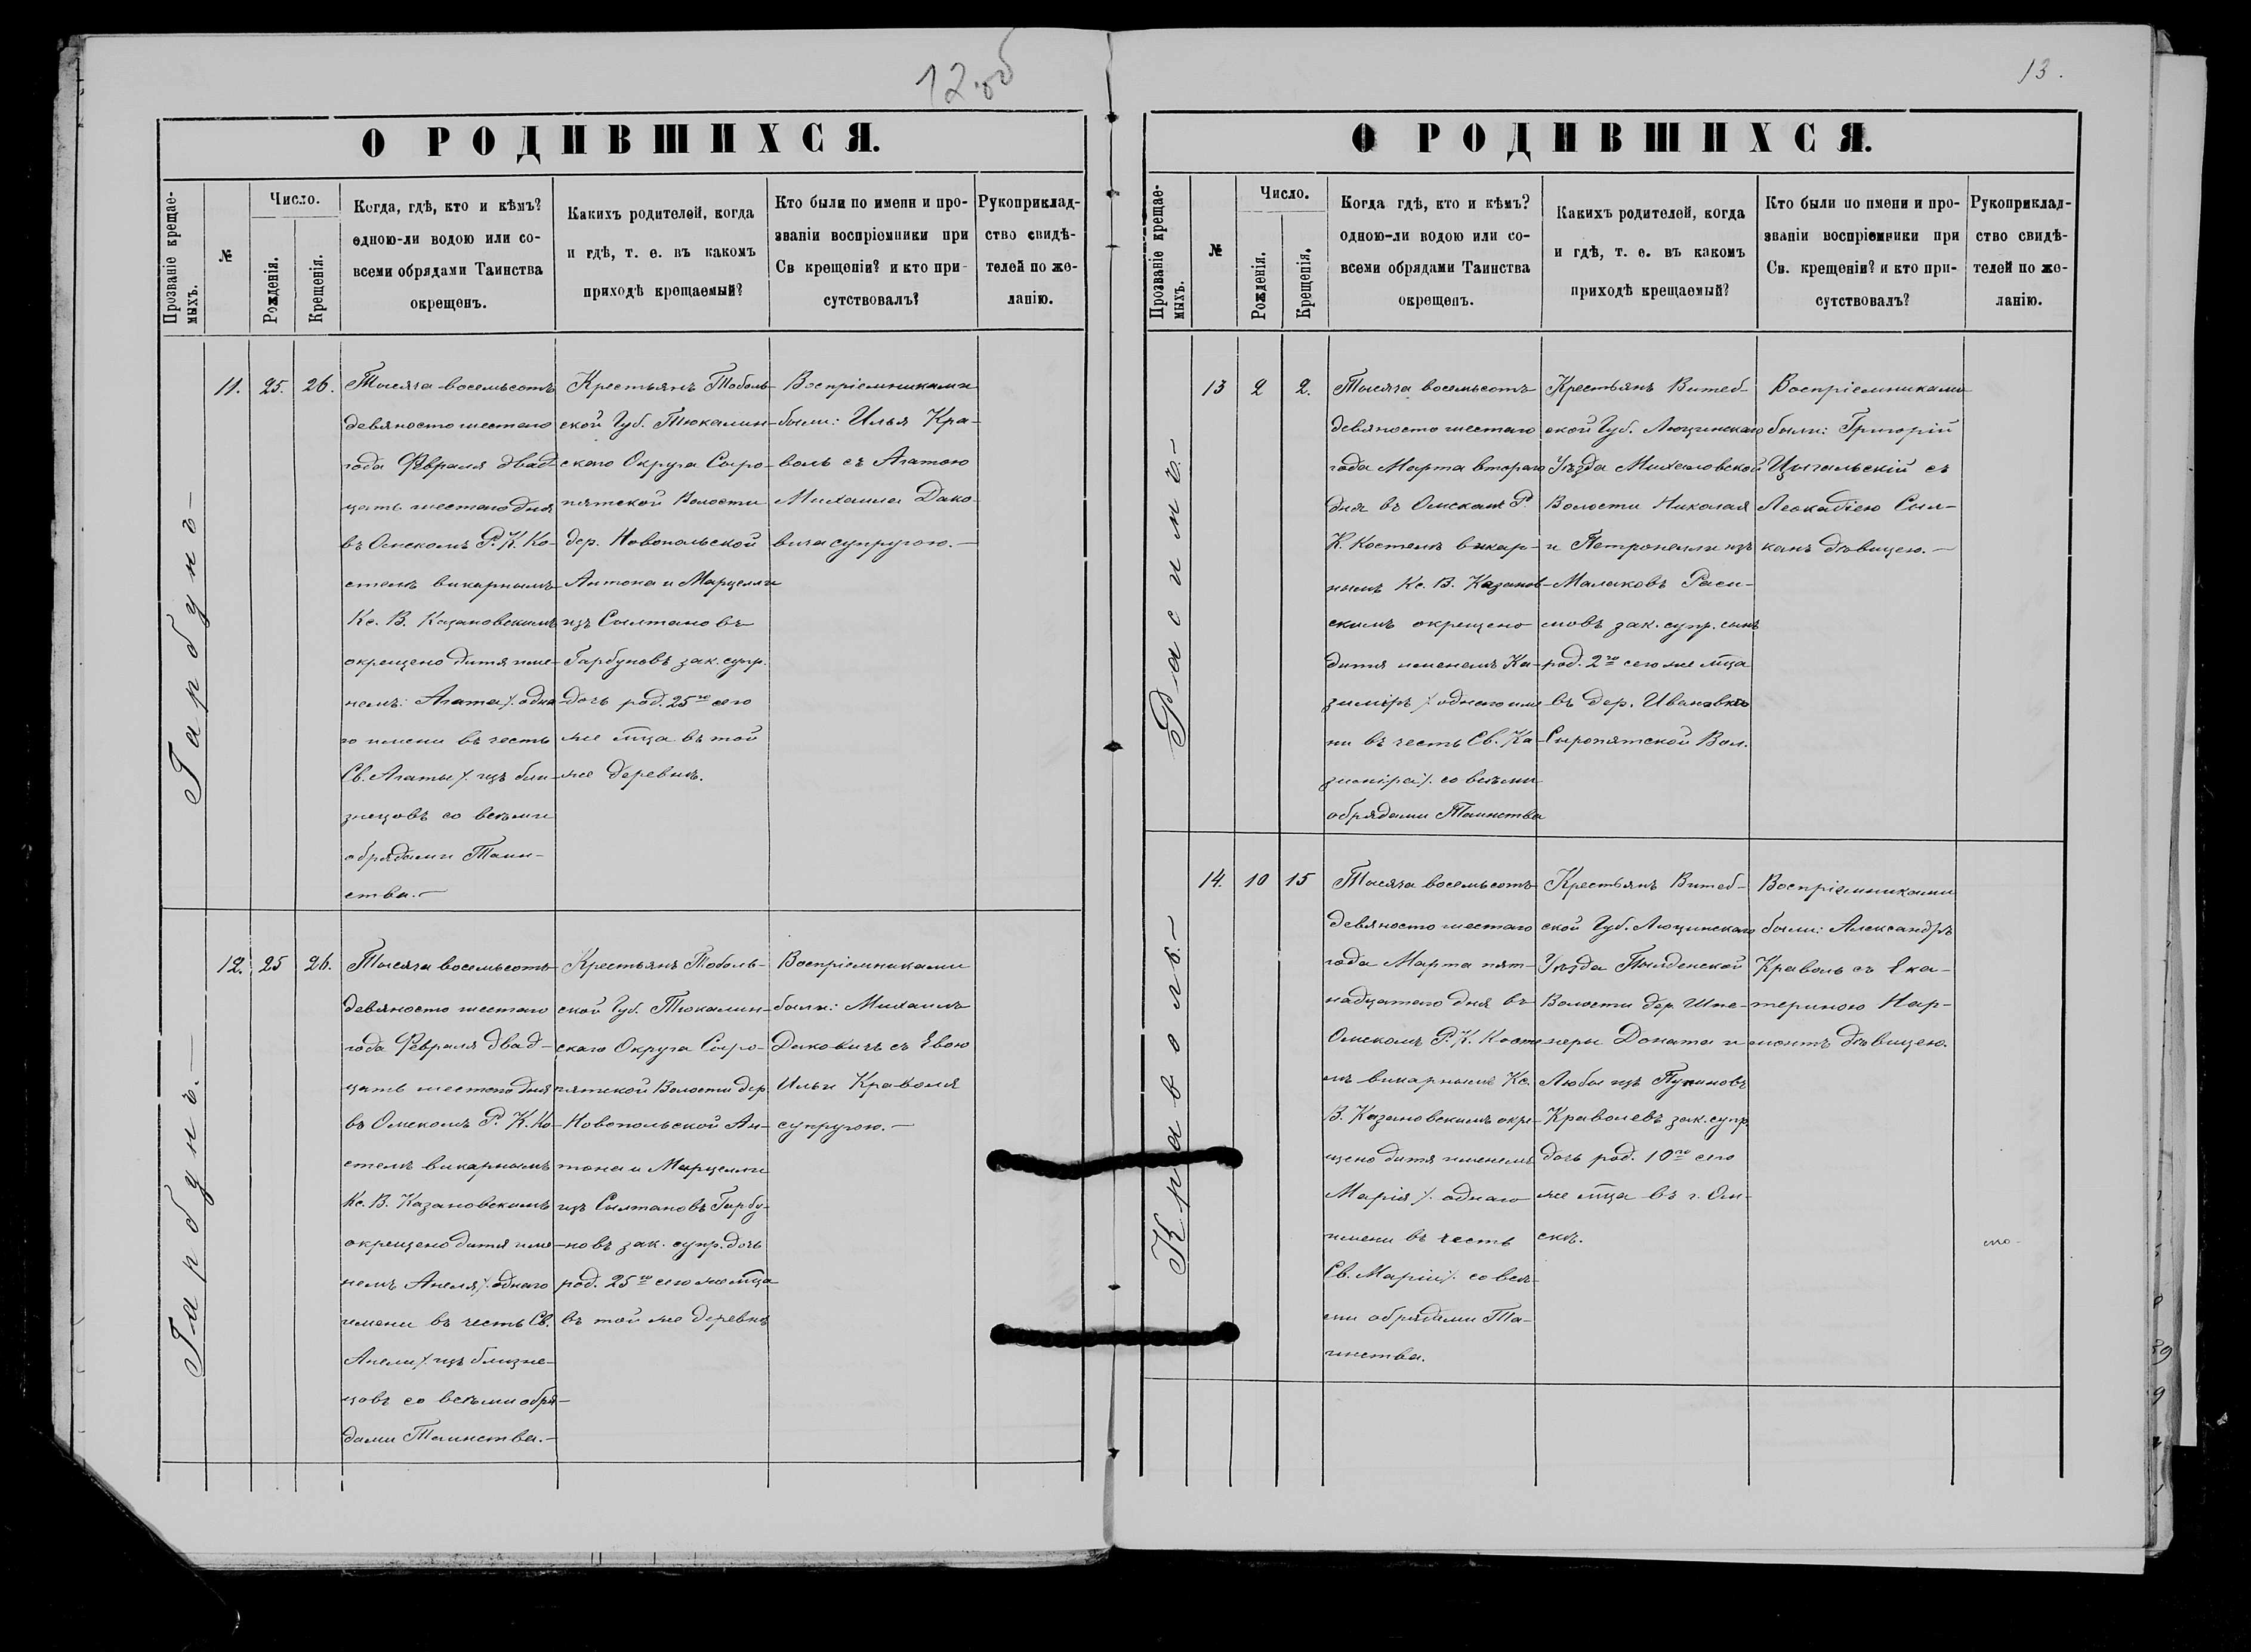 12 об
О РОДИВШИХСЯ.
Прозваніе крещае-
мыхъ.
№
Число.
Рожденія.
Крещенія.
Когда, гдѣ, кто и кѣмъ?
одною-ли водою или со-
всеми обрядами Таинства
окрещенъ.
Какихъ родителей, когда
и гдѣ, т. е. въ какомъ
приходѣ крещаемый?
Кто были по имени и про-
званіи воспріемники при
Св крещеніи? и кто при-
сутствовалъ?
Рукоприклад-
ство свидѣ-
телей по же-
ланію.
Гарбунъ –
11. 25. 26.
Тысяча восемьсотъ
девяносто шестаго
года Февраля двад-
цать шестаго дня
въ Омскомъ Р. К. Ко-
стелѣ викарнымъ
Кс. В. Казановскимъ
окрещено дитя име-
немъ: Агата /. одна-
го имени въ честь
Св. Агаты /. изъ бли-
знецовъ со всѣми
обрядами Таин-
ства. –
Крестьянъ Тоболь-
ской Губ. Тюкалин-
скаго Округа Сыро-
пятской Волости
дер. Новопольской
Антона и Марцелли
изъ Солтановъ
Гарбуновъ зак. супр.
дочь род. 25го сего
же мца въ той
же деревнѣ.
Воспріемниками
были: Илья Кра-
воль съ Агатою
Михаила Дако-
вича супругою. –
Гарбунъ. –
12. 25 26.
Тысяча восемьсотъ
девяносто шестаго
года Февраля двад-
цать шестаго дня
въ Омскомъ Р. К. Ко-
стелѣ викарнымъ
Кс. В. Казановскимъ
окрещено дитя име-
немъ Анеля /. однаго
имени въ честь Св.
Анели /. изъ близне-
цовъ со всѣми обря-
дами Таинства. –
Крестьянъ Тоболь-
ской Губ. Тюкалин-
скаго Округа Сыро-
пятской Волости дер.
Новопольской Ан-
тона и Марцелли
изъ Солтановъ Гарбу-
новъ зак. супр. дочь
род. 25го сего же мца
въ той же деревнѣ
Воспріемниками
были: Михаилъ
Даковичъ съ Евою
Ильи Краволя
супругою. –
13.
О РОДИВШИХСЯ.
Прозваніе крещае-
мыхъ.
№
Число.
Рожденія.
Крещенія.
Когда гдѣ, кто и кѣмъ?
одною-ли водою или со-
всеми обрядами Таинства
окрещенъ.
Какихъ родителей, когда
и гдѣ, т. е. въ какомъ
приходѣ крещаемый?
Кто были по имени и про-
званіи воспріемники при
Св. крещеніи? и кто при-
сутствовалъ?
Рукоприклад-
ство свидѣ-
телей по же-
ланію.
Расимъ. –
13 2 2.
Тысяча восемьсотъ
девяносто шестаго
года Марта втораго
дня въ Омскомъ Р.
К. Костелѣ викар-
нымъ Кс. В. Казанов-
скимъ окрещено
дитя именемъ Ка-
зиміръ /. однаго име-
ни въ честь Св. Ка-
зиміра /. со всѣми
обрядами Таинства
Крестьянъ Витеб-
ской Губ. Люцинскаго
Уѣзда Михаловской
Волости Николая
и Петронели изъ
Малаховъ Раси-
мовъ зак. супр. сынъ
род. 2го сего же мца
въ дер. Ивановкѣ
Сыропятской Вол.
Воспріемниками
были: Григорій
Цыгальскій съ
Леокадіею Сыл-
канъ дѣвицею. –
Краволь. –
14. 10 15
Тысяча восемьсотъ
девяносто шестаго
года Марта пят-
надцатаго дня въ
Омскомъ Р. К. Косте-
лѣ викарнымъ Кс.
В. Казановскимъ окре-
щено дитя именемъ
Марія /. однаго
имени въ честь
Св. Маріи /. со всѣ-
ми обрядами Та-
инства.
Крестьянъ Витеб-
ской Губ. Люцинскаго
Уѣзда Пылденской
Волости дер. Шне-
перы Доната и
Любы изъ Пукиновъ
Краволевъ зак. супр.
дочь род. 10го сего
же мца въ г. Ом-
скѣ.
Воспріемниками
были: Александръ
Краволь съ Ека-
териною Нар-
монтъ дѣвицею.